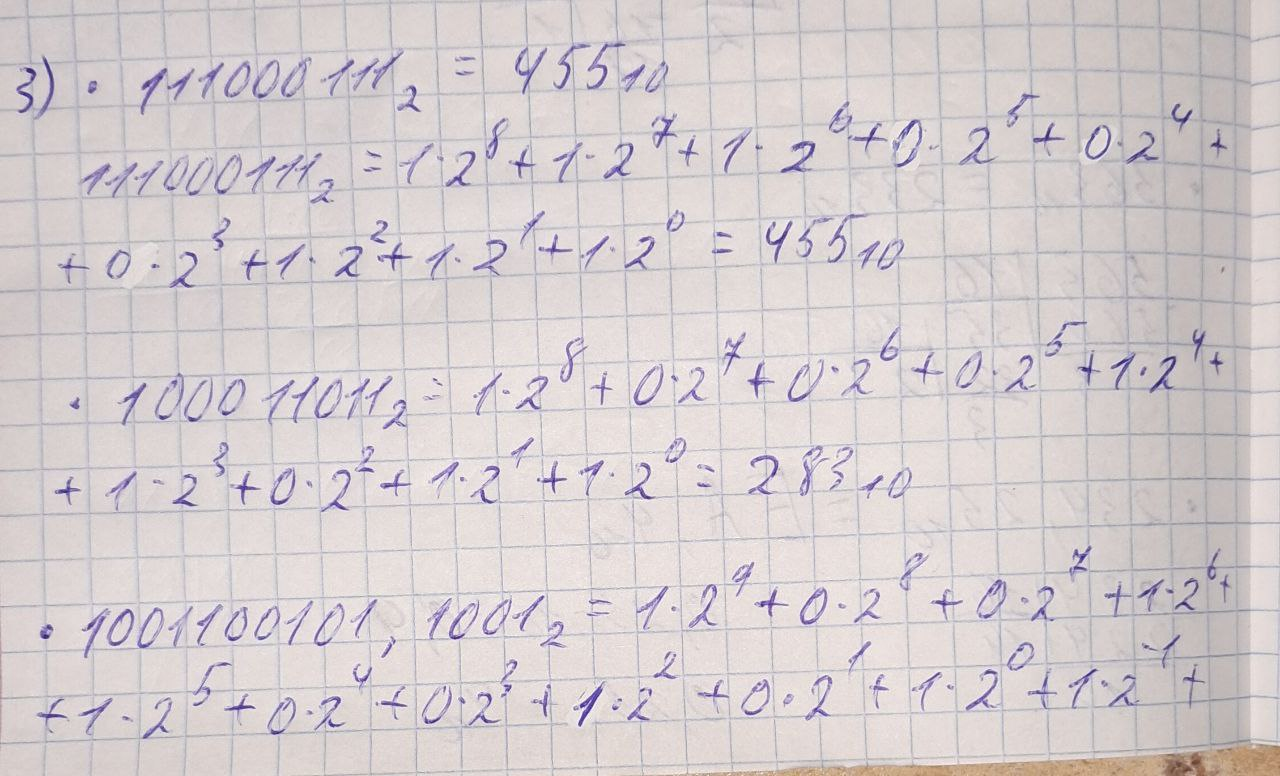 3) · 111000111₂ = 455₁₀
111000111₂ = 1·2⁸ + 1·2⁷ + 1·2⁶ + 0·2⁵ + 0·2⁴ +
+ 0·2³ + 1·2² + 1·2¹ + 1·2⁰ = 455₁₀
· 100011011₂ = 1·2⁸ + 0·2⁷ + 0·2⁶ + 0·2⁵ + 1·2⁴ +
+ 1·2³ + 0·2² + 1·2¹ + 1·2⁰ = 283₁₀
· 1001100101,1001₂ = 1·2⁹ + 0·2⁸ + 0·2⁷ + 1·2⁶ +
+ 1·2⁵ + 0·2⁴ + 0·2³ + 1·2² + 0·2¹ + 1·2⁰ + 1·2⁻¹ +